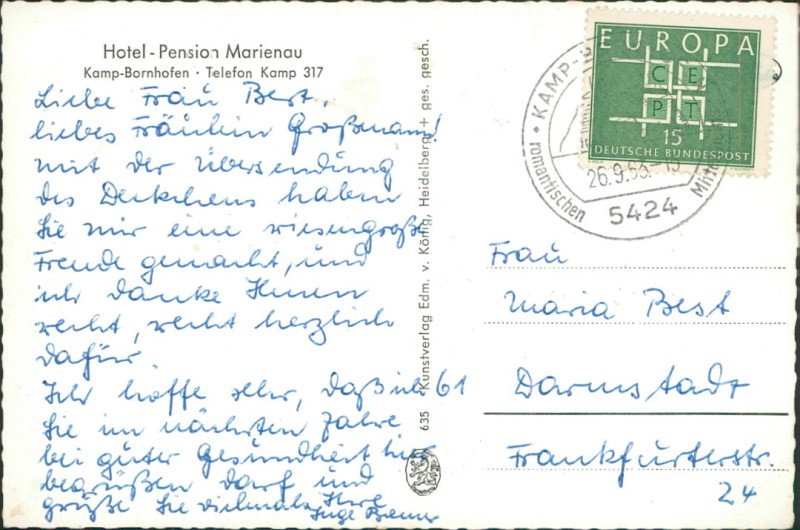 Hotel - Pension Marienau
Kamp-Bornhofen · Telefon Kamp 317
Liebe Frau Best,
liebes Fräulein Großmann!
mit der Übersendung
des Deckchens haben
Sie mir eine riesengroße
Freude gemacht, und
ich danke Ihnen
recht, recht herzlich
dafür.
Ich hoffe sehr, daß ich
Sie im nächsten Jahre
bei guter Gesundheit hier
begrüßen darf und
grüße Sie vielmals Ihre
Inge
635 · Kunstverlag Edm. v. König, Heidelberg + ges. gesch.
EUROPA
CE
PT
15
DEUTSCHE BUNDESPOST
KAMP-
26.9.63
romantischen
5424
Frau
Maria Best
61 Darmstadt
Frankfurterstr.
24